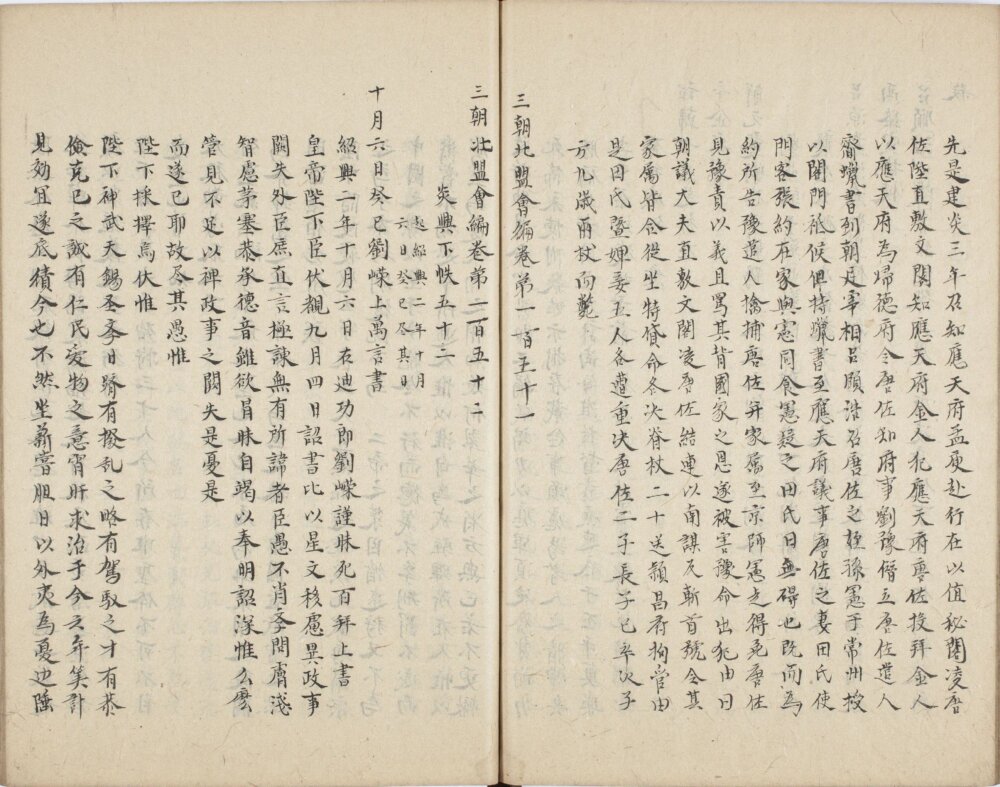 先是建炎三年召知應天府孟庾赴行在以值秘閣凌唐
佐陞直敷文閣知應天府金人犯應天府唐佐投拜金人
以應天府為歸德府令唐佐知府事劉豫僭立唐佐遣人
齎蠟書到朝廷宰相呂頤浩召唐佐之姪孫憲于常州授
以閤門祗候但持蠟書至應天府議事唐佐之妻田氏使
門客張約在家與憲同食憲疑之田氏曰無碍也既而為
約所告豫遣人擒捕唐佐并家屬至京師憲走得免唐佐
見豫責以義且罵其背國家之恩遂被害豫命出犯由曰
朝議大夫直敷文閣凌唐佐結連以南謀反斬首號令其
家屬皆合從坐特貸命各決脊杖二十送潁昌府拘管由
是田氏暨婢妾五人各遭重決唐佐二子長子已卒次子
方九歲兩杖而斃
三朝北盟會編卷第一百五十一
三朝北盟會編卷第一百五十二
炎興下帙五十二
起紹興二年十月
六日癸巳尽其日
十月六日癸巳劉嶸上萬言書
紹興二年十月六日右迪功郎劉嶸謹昧死百拜上書
皇帝陛下臣伏觀九月四日詔書比以星文移慝異政事
闕失外臣庶直言極諫無有所諱者臣愚不肖學問膚淺
智慮茅塞恭承德音雖欲冐昧自竭以奉明詔深惟么麼
管見不足以裨政事之闕失是憂是
而遂已耶故尽其愚惟
陛下採擇焉伏惟
陛下神武天錫圣孝日躋有撥乱之略有駕馭之才有恭
儉克己之誠有仁民爱物之意宵旰求治于今六年矣計
見効宜遂底績今也不然坐薪嘗胆日以外夷為憂边陲